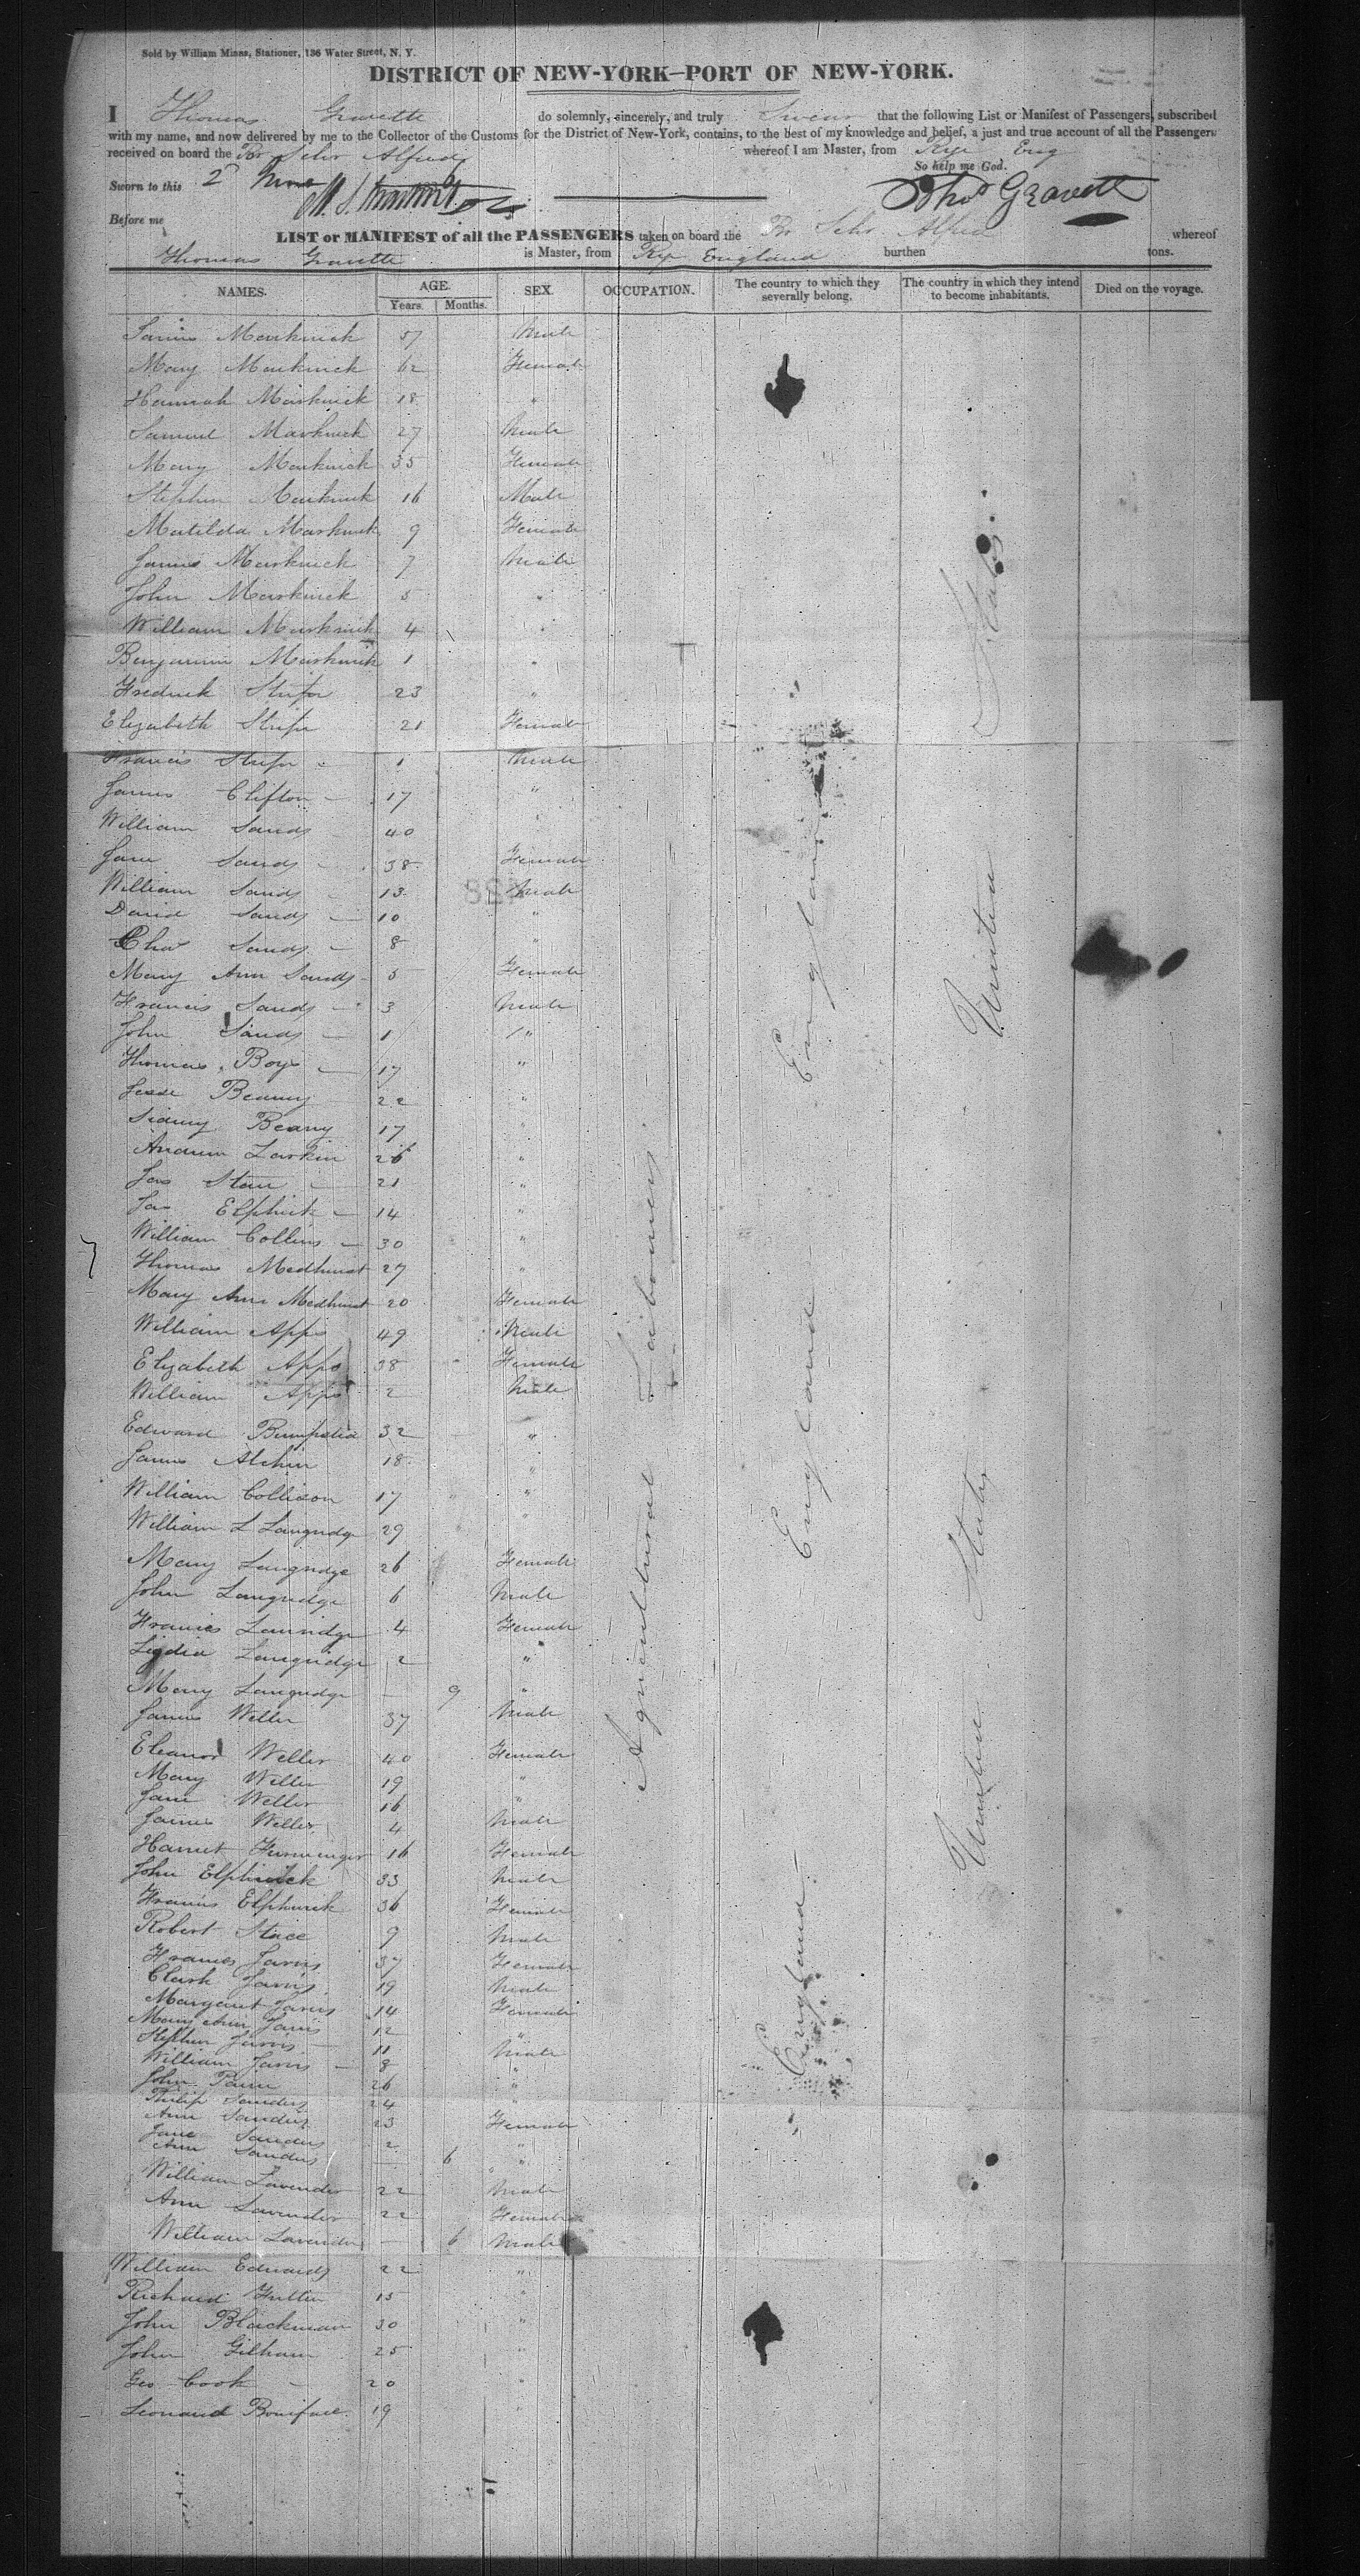 Sold by William Minns, Stationer, 136 Water Street, N. Y.
DISTRICT OF NEW-YORK—PORT OF NEW-YORK.
I Thomas Gravette do solemnly, sincerely, and truly Swear that the following List or Manifest of Passengers, subscribed
with my name, and now delivered by me to the Collector of the Customs for the District of New-York, contains, to the best of my knowledge and belief, a just and true account of all the Passengers
received on board the Br Schr Alfred whereof I am Master, from Rye Eng
So help me God.
Sworn to this 2
Before me
Thos Gravett
LIST or MANIFEST of all the PASSENGERS taken on board the Br Schr Alfred whereof
Thomas Gravette is Master, from Rye England burthen tons.
NAMES. AGE. Years. Months. SEX. OCCUPATION. The country to which they severally belong. The country in which they intend to become inhabitants. Died on the voyage.
James Markwick 57 Male
Mary Markwick 62 Female
Hannah Markwick 18 "
Samuel Markwick 27 Male
Mary Markwick 35 Female
Stephen Markwick 16 Male
Matilda Markwick 9 Female
James Markwick 7 Male
John Markwick 5 "
William Markwick 4 "
Benjamin Markwick 1 "
Fredrick 23 "
Elizabeth 21 Female
Francis 1 Male
James Clifton 17 "
William Sands 40 "
Jane Sands 38 Female
William Sands 13 Male
David Sands 10 "
Chas Sands 8 "
Mary Ann Sands 5 Female
Francis Sands 3 Male
John Sands 1 "
Thomas Boys 17 "
Jesse Beaney 22 "
Sidney Beany 17 "
Andrew Larkin 26 "
Jas 21 "
Jas Elphick 14 "
William Collins 30 "
Thomas Medhurst 27 "
Mary Ann Medhurst 20 Female
William Apps 49 Male
Elizabeth Apps 38 Female
William Apps 2 Male
Edward 32 "
James Alchin 18 "
William Collison 17 "
William L Langridge 29 "
Mary Langridge 26 Female
John Langridge 6 Male
Frances Lanridge 4 Female
Lydia Langridge 2 "
Mary Langridge — 9 "
James Weller 37 Male
Eleanor Weller 40 Female
Mary Weller 19 "
Jane Weller 16 "
James Weller 4 Male
Harriet 16 Female
John Elphick 33 Male
Francis Elphick 36 Female
Robert Stace 9 Male
Frances Jarvis 37 Female
Clark Jarvis 19 Male
Margaret Jarvis 14 Female
Mary Ann Jarvis 12 "
Stephen Jarvis 11 Male
William Jarvis 8 "
John 26 "
Philip Sanders 24 "
Ann Sanders 23 Female
Jane Sanders 2 "
Ann Sanders — 6 "
William Lavender 22 Male
Ann Lavender 22 Female
William Lavender — 6 Male
William Edwards 22 "
Richard 15 "
John Blackman 30 "
John Gilham 25 "
Geo Cook 20 "
Leonard Boniface 19 "
Agricultural Labourers
England England England
United States United States